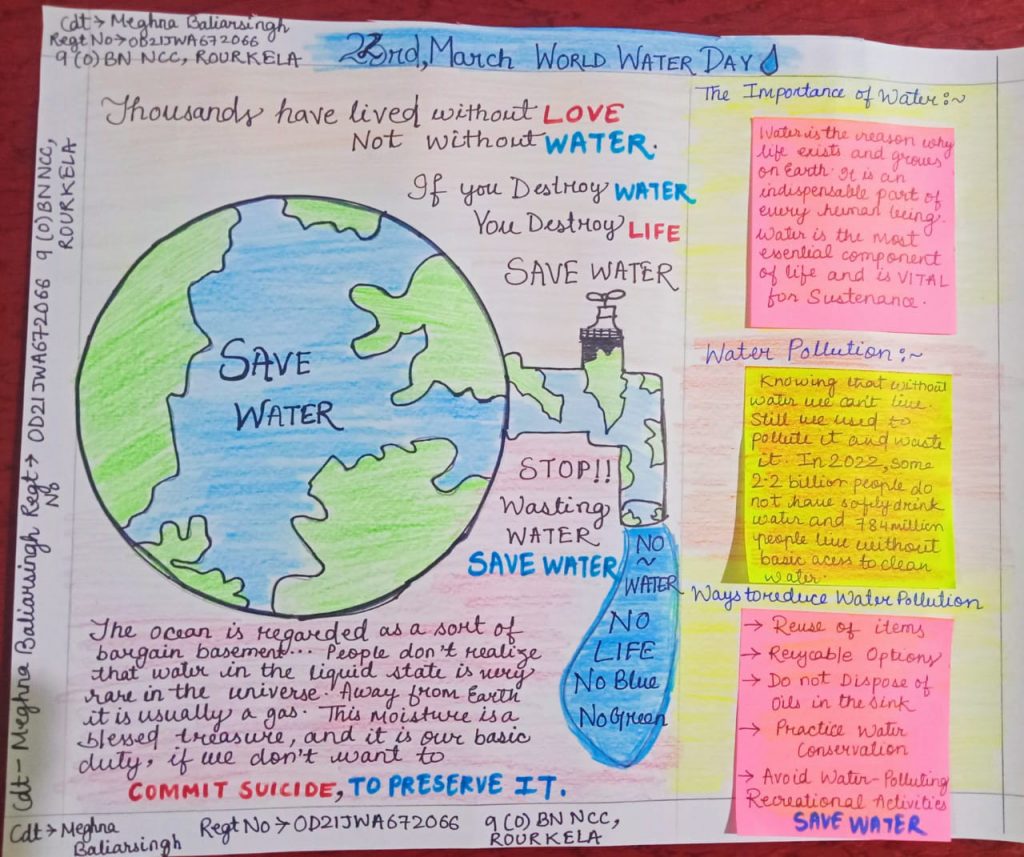 Cdt → Meghna Baliarsingh
Regt No → OD21JWA672066
9 (O) BN NCC, ROURKELA
23rd, March WORLD WATER DAY
Thousands have lived without LOVE
Not without WATER.
If you Destroy WATER
You Destroy LIFE
SAVE WATER
SAVE
WATER
STOP!!
Wasting
WATER
SAVE WATER
NO
~
WATER
NO
LIFE
No Blue
No Green
The ocean is regarded as a sort of
bargain basement... People don't realize
that water in the liquid state is very
rare in the universe. Away from Earth
it is usually a gas. This moisture is a
blessed treasure, and it is our basic
duty, if we don't want to
COMMIT SUICIDE, TO PRESERVE IT.
The Importance of Water:~
Water is the reason why
life exists and grows
on Earth. It is an
indispensable part of
every human being.
Water is the most
essential component
of life and is VITAL
for Sustenance.
Water Pollution:~
Knowing that without
water we can't live.
Still we used to
pollute it and waste
it. In 2022, some
2.2 billion people do
not have safely drink
water and 784 million
people live without
basic acess to clean
water.
Ways to reduce Water Pollution
→ Reuse of items
→ Recycable Options
→ Do not Dispose of
Oils in the sink
→ Practice Water
Conservation
→ Avoid Water-Polluting
Recreational Activities
SAVE WATER
Cdt - Meghna Baliarsingh Regt No → OD21JWA672066 9 (O) BN NCC,
ROURKELA
Cdt → Meghna
Baliarsingh
Regt No → OD21JWA672066
9 (O) BN NCC,
ROURKELA